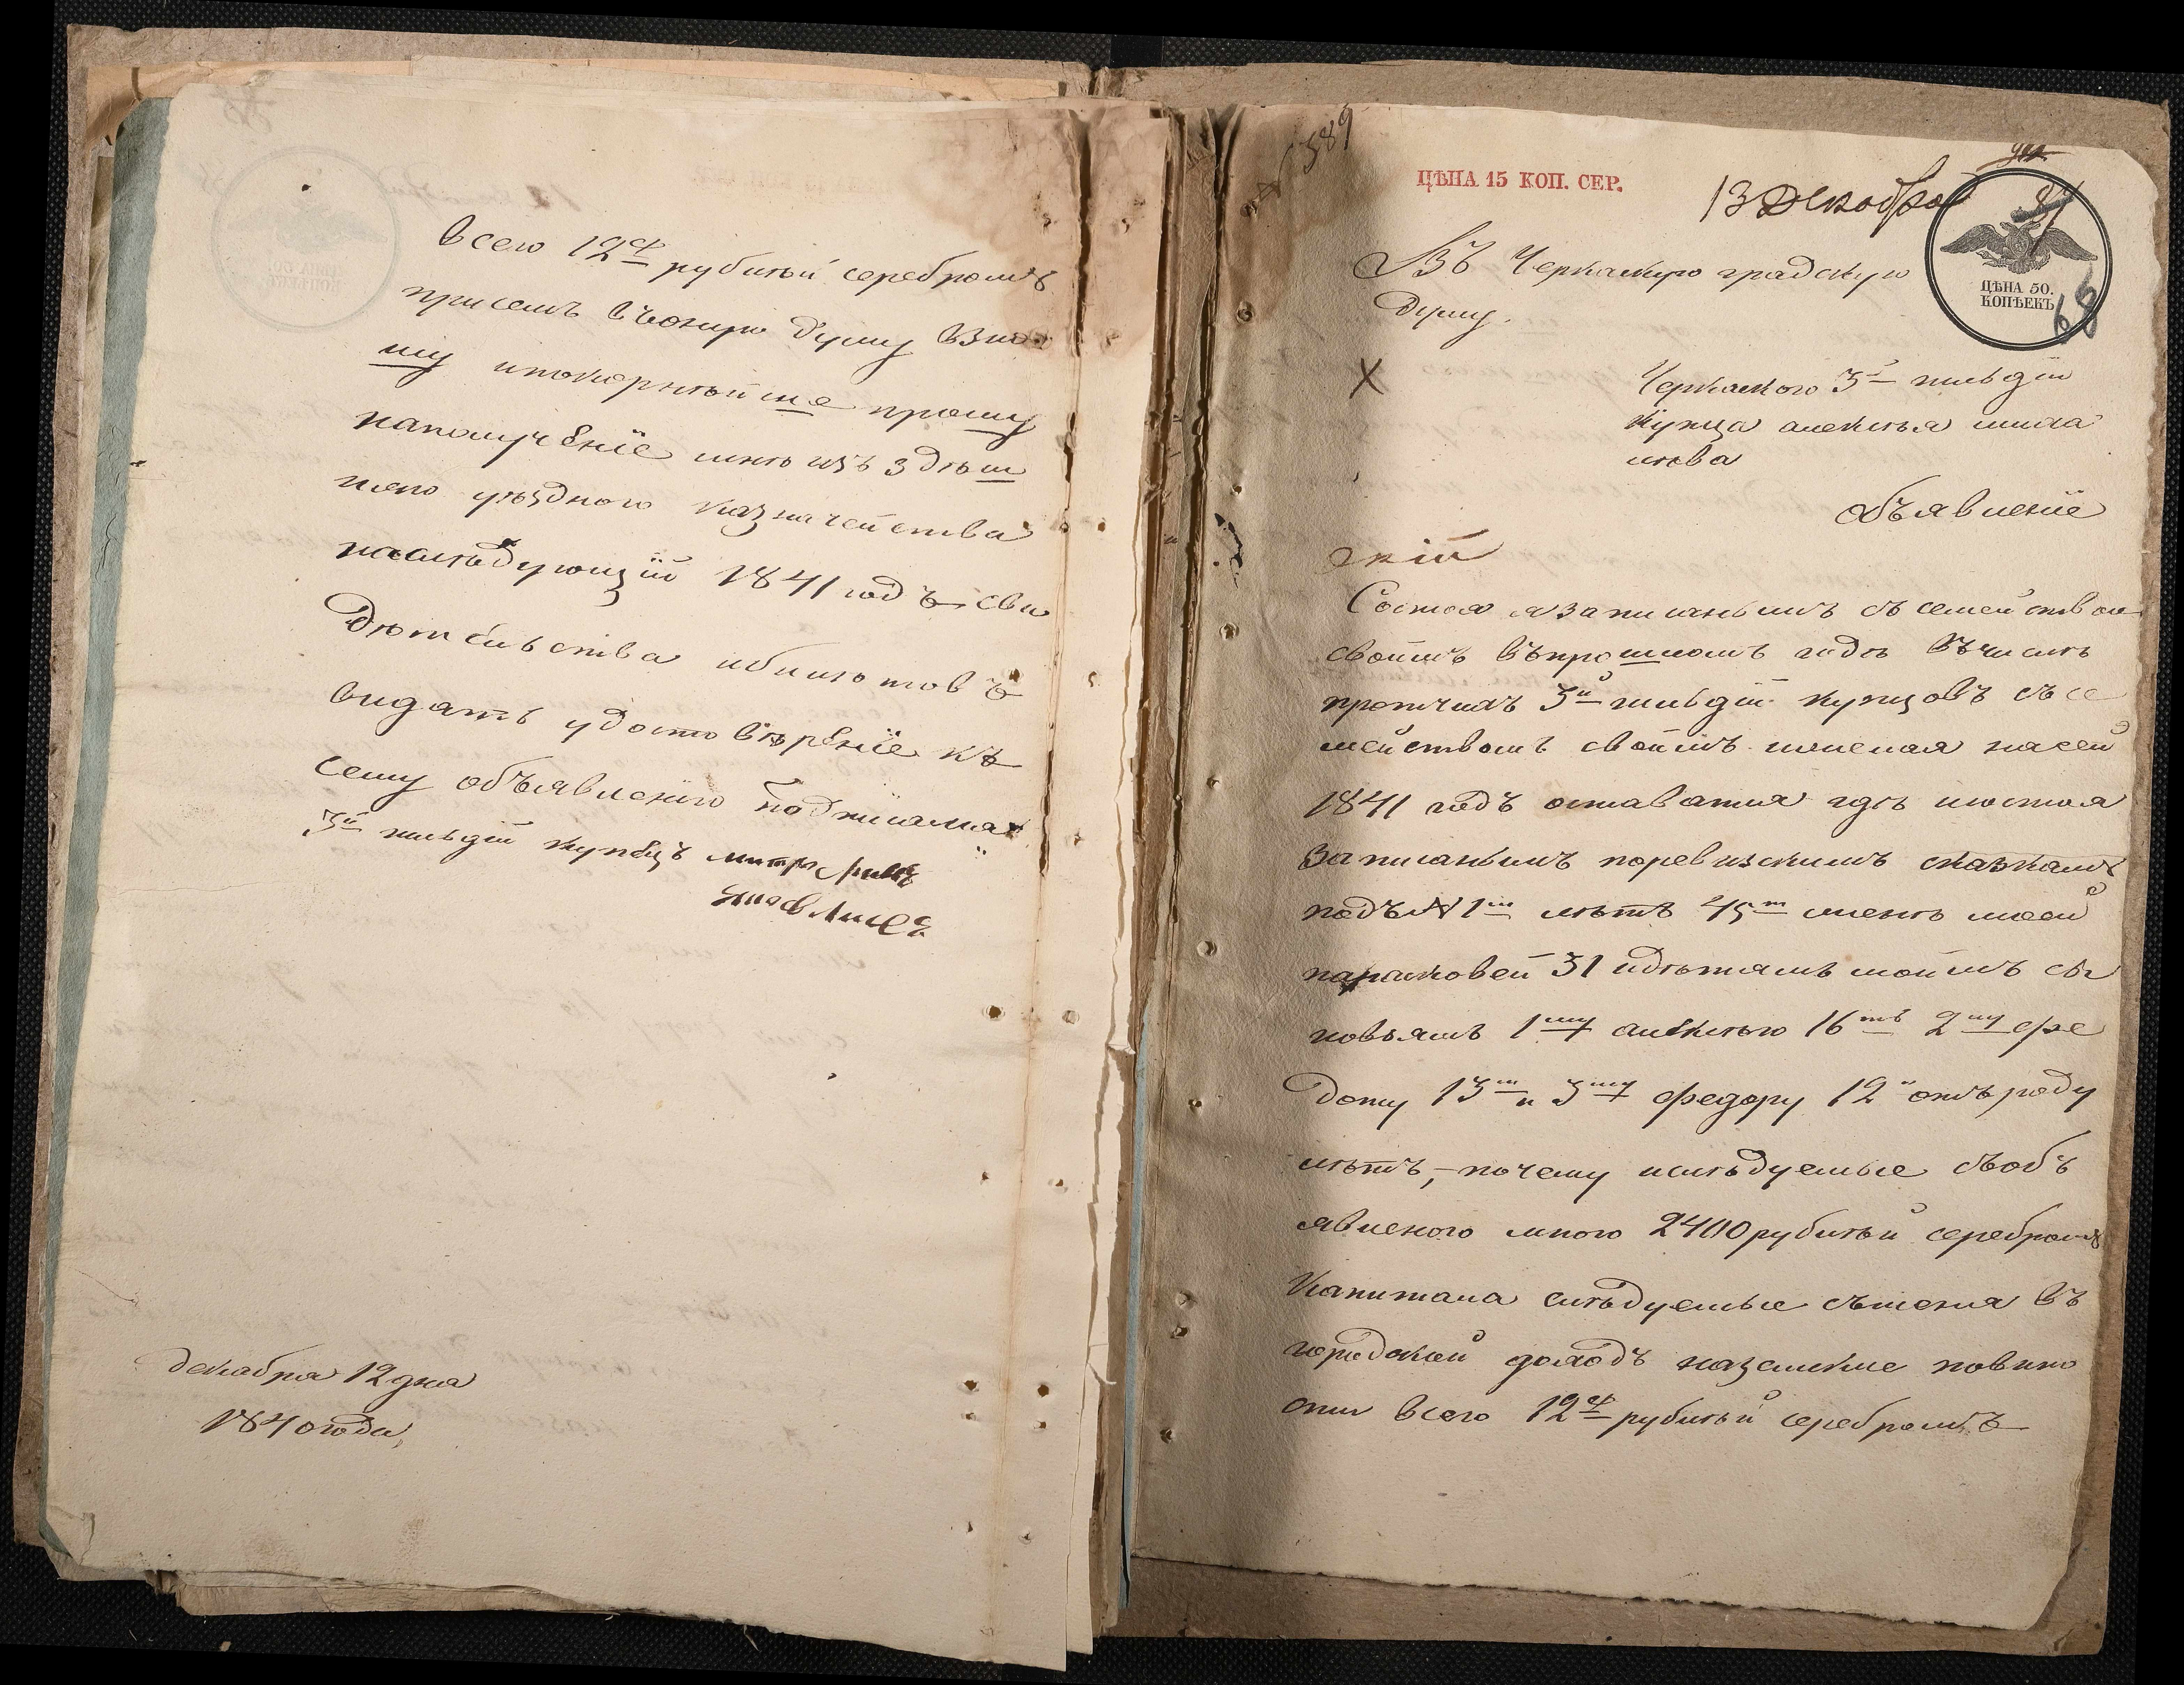 всего 12 рублей серебромъ
присемъ въоную думу взно
шу ипокорнѣйше прошу
наполучение мнѣ изъ здѣш
няго уѣзднаго казначейства
наслѣдующій 1841 годъ сви
дѣтельства ибилѣтовъ
видать удостовѣреніе къ
сему объявленію подписался
3й гильдіи купецъ
декабря 12 дня
1840 года
589
ЦѢНА 15 КОП. СЕР.
13 Декабря
87
66
ЦѢНА 50.
КОПѢЕКЪ
Въ Черкаскую градскую
думу.
Черкаского 3й гильдіи
купца алексѣя
Объявленіе
Состоя я записаннымъ съ семейством
своимъ въпрошломъ годѣ въчислѣ
протчихъ 3й гильдіи купцовъ съ се
мействомъ своимъ желая насей
1841 годъ оставатся гдѣ исостоя
записаннымъ поревизскимъ сказкамъ
подъ № 1м лѣтъ 45т женѣ моей
парасковеи 31 идѣтямъ моимъ сы
новьямъ 1му алексѣю 16ть 2му фе
доту 13 и 3му федору 12 отъ роду
лѣтъ, почему ислѣдуемые съобъ
явленого мною 2400 рублей серебромъ
капитала слѣдуемые съменя въ
городской доходъ наземские повино
сти всего 12 рублей серебромъ